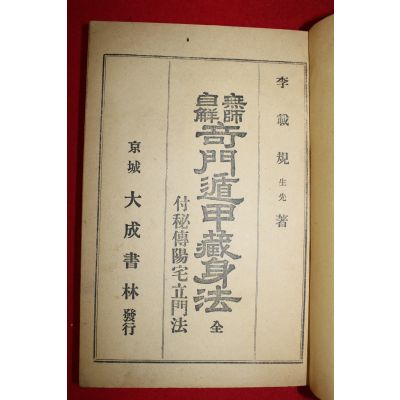 李載規 先生 著
無師自解
奇門遁甲藏身法 全
付秘傳陽宅立門法
京城 大成書林 發行